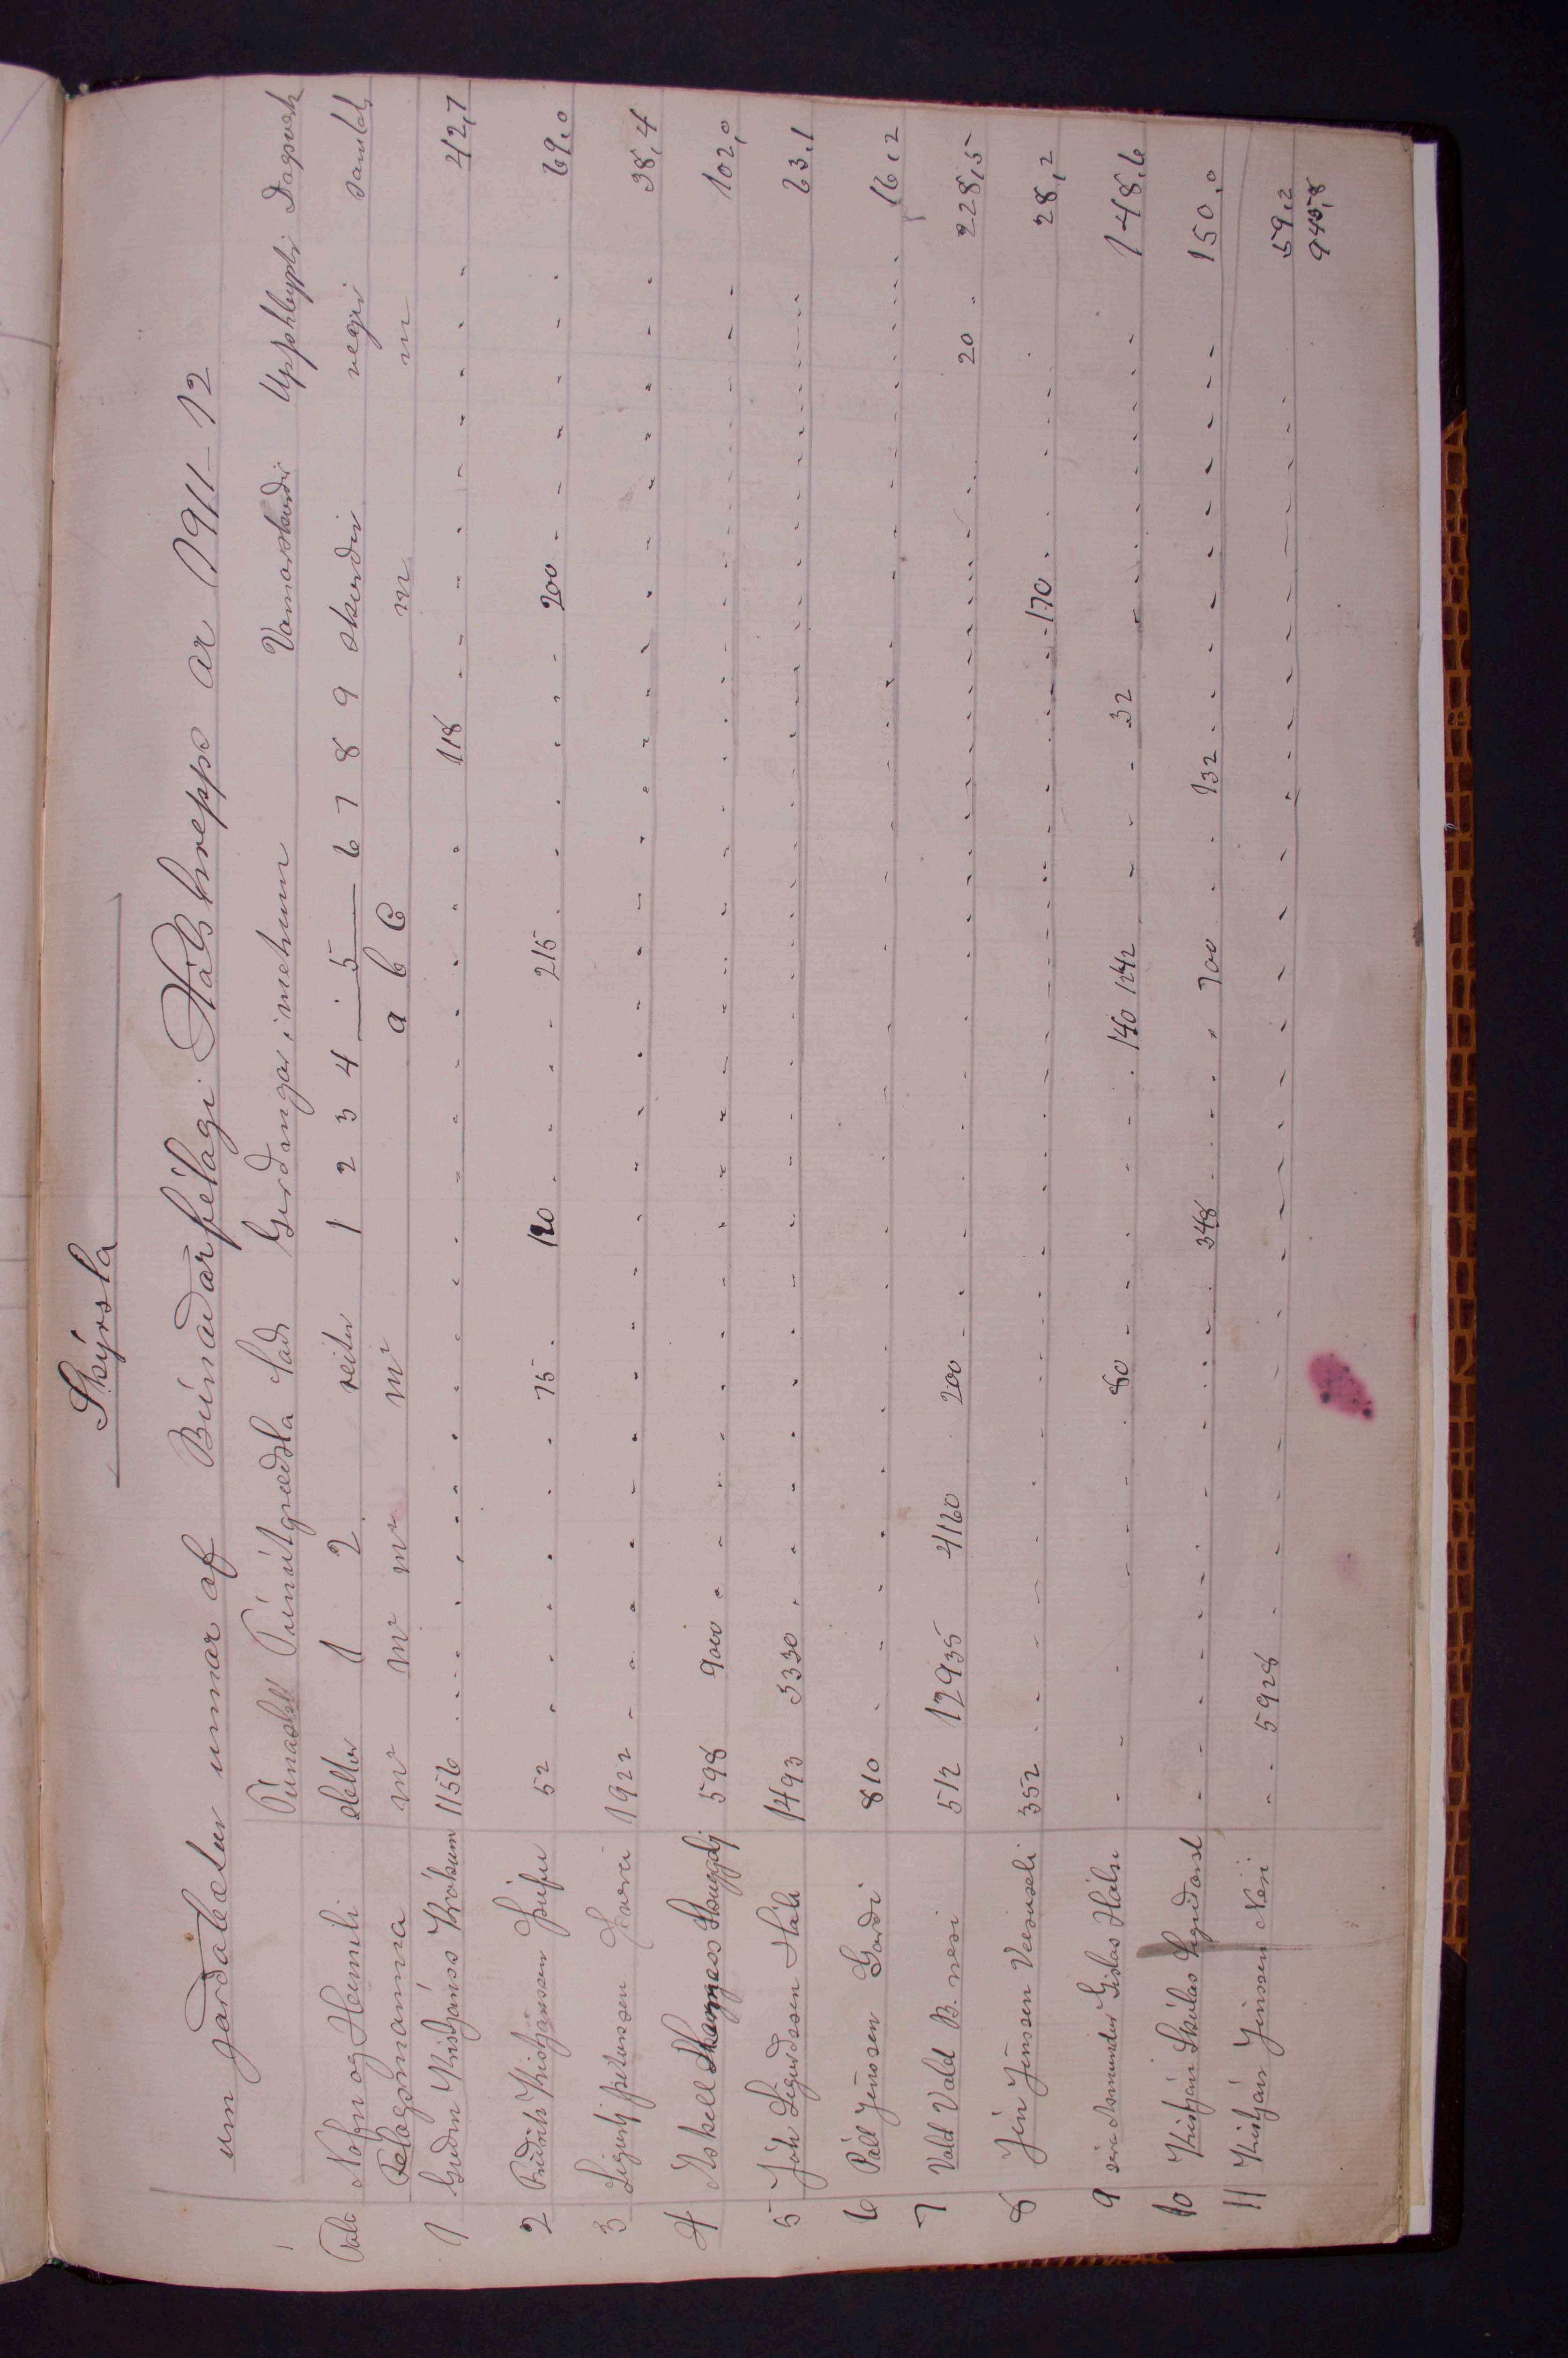 Skýrsla
um jarðabætur unnar af Búnaðarfélagi Hálshrepps ár 1911-12
Túnasléttur Túnútgræðsla Sáð Girðingar í metrum Vatnsskurðir Upphleyptir Dagsverk
Tala Nöfn og Heimili sléttur 1 2 reitir 1 2 3 4 5 6 7 8 9 skurðir vegir samtals
Felagsmanna m² m² m² m² a b c m m
1 Guðm Kristjánss Krókum 1156 118 42,7
2 Friðrik Kristjánsson Þúfu 52 75 120 215 200 69,0
3 Sigurj Pétursson 1922 38,4
4 Áskell Hannesson Skuggabj 598 900 102,0
5 Jóh Sigurðsson Háls 1493 3330 63,1
6 Páll Jónsson Garði 810 16,2
7 Vald Vald B. nesi 512 12935 4160 200 20 228,5
8 Jón Jónsson Veisuseli 352 170 28,2
9 séra Ásmundur Gíslas Hálsi 80 140 1242 32 148,6
10 Kristján Skúlas Sigríðarst 348 700 132 150,0
11 Kristján Jónsson Nesi 5928 59,2
945,8